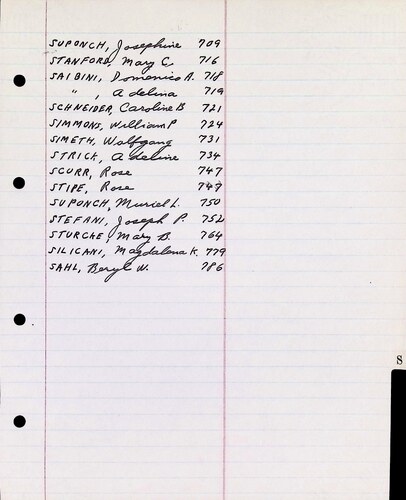 SUPONCH, Josephine 709
STANFORD, Mary C. 716
SAIBINI, Domenico A. 718
" , Adelina 719
SCHNEIDER, Caroline B 721
SIMMONS, William P 724
SIMETH, Wolfgang 731
STRICK, Adeline 734
SCURR, Rose 747
STIPE, Rose 747
SUPONCH, Muriel L. 750
STEFANI, Joseph P. 752
STURCKE, Mary B. 764
SILICANI, Magdalena K. 779
SAHL, Beryl W. 786
S